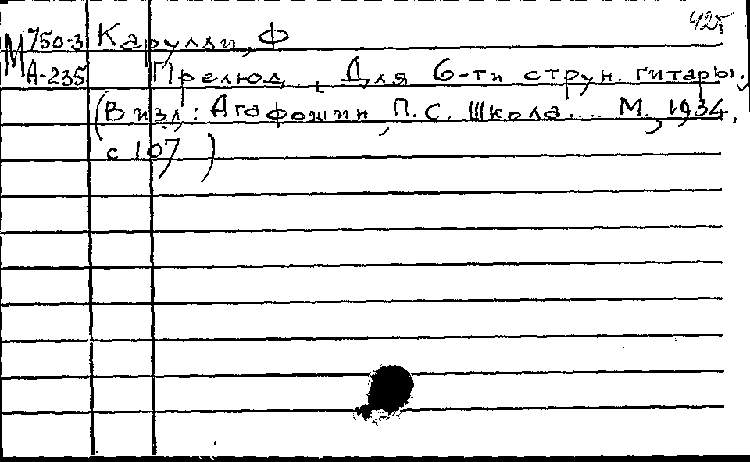 425
М 750-3 Карулли, Ф
А-235 Прелюд. Для 6-ти струн. гитары.
(В изд: Агафошин, П.С. Школа... М., 1934,
с 107)